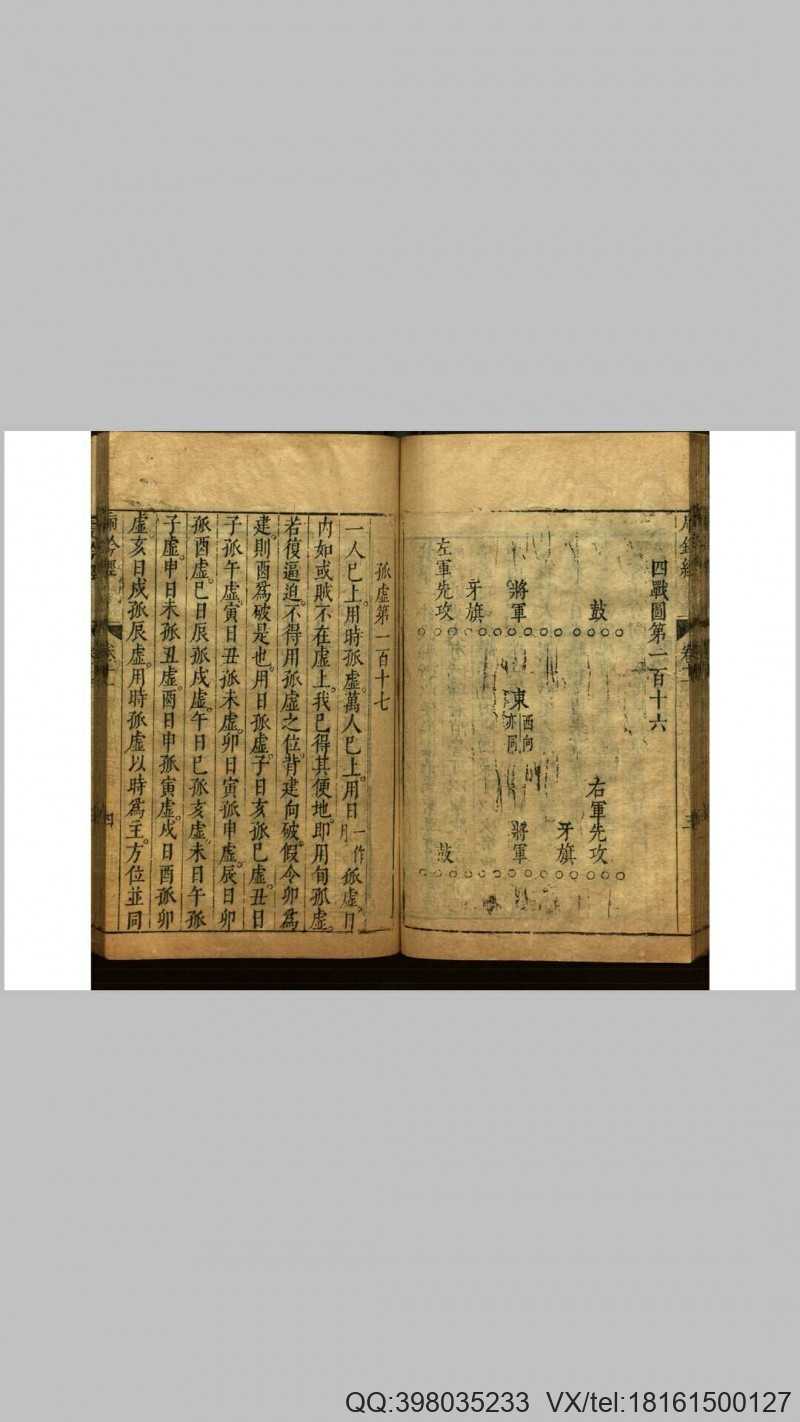 四戰圖第一百十六
鼓
將軍
牙旗
左軍先攻
東
西向
亦同
右軍先攻
牙旗
將軍
鼓
孤虛第一百十七
一人已上。用時孤虛。萬人已上。用日一作月孤虛。月
内如或賊不在虛上。我已得其便地。即用旬孤虛。
若復逼迫。不得用孤虛之位。背建向破。假令卯爲
建。則酉爲破是也。用日孤虛。子日亥孤巳虛。丑日
子孤午虛。寅日丑孤未虛。卯日寅孤申虛。辰日卯
孤酉虛。巳日辰孤戌虛。午日巳孤亥虛。未日午孤
子虛。申日未孤丑虛。酉日申孤寅虛。戌日酉孤卯
虛。亥日戌孤辰虛。用時孤虛以時爲主。方位並同
QQ:398035233 VX/tel:18161500127